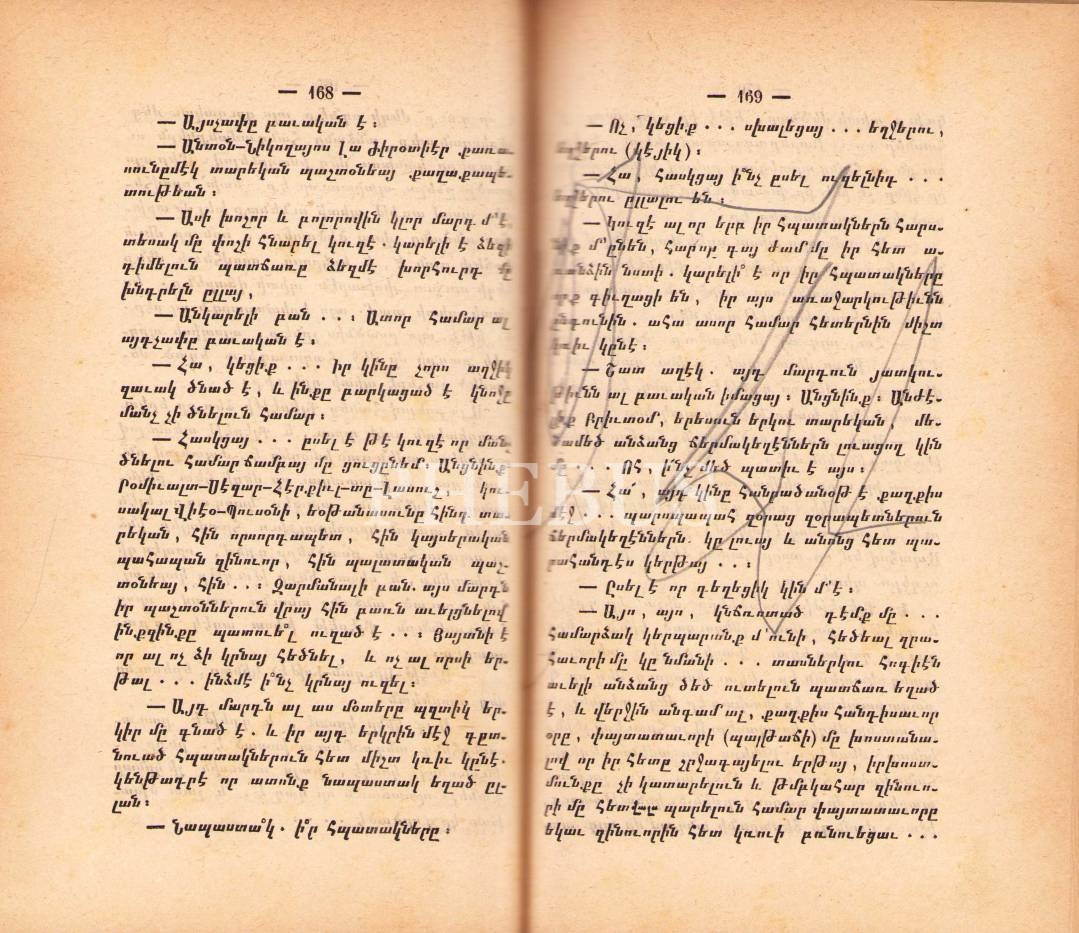 — 168 —
— Այսչափը բաւական է ։
— Անտօն-Նիկողայոս Լա Ժիրօտիէր քառա-
սունըմէկ տարեկան պաշտօնեայ քաղաքապե-
տութեան ։
— Ասի խոշոր և բոլորովին կլոր մարդ մ'է
տեսակ մը փոշի հնարել կուզէ . կարելի է ձեզի
դիմելուն պատճառը ձեզմէ խորհուրդ մը
խնդրելն ըլլայ ,
— Անկարելի բան . . . ։ Ատոր համար ալ
այդչափը բաւական է ։
— Հա , կեցիք . . . իր կինը չորս աղջիկ
զաւակ ծնած է , և ինքը բարկացած է կնոջը
մանչ չի ծնելուն համար ։
— Հասկցայ . . . ըսել է թէ կուզէ որ մանչ
ծնելու համար ճամբայ մը ցուցընեմ ։ Անցնինք
Րօմիւալտ-Սէզար-Հէրքիւլ-տը-Լասուշ , կու-
սակալ Վիէօ-Պուսօնի , եօթանասունը հինգ տա-
րեկան , հին որսորդապետ , հին կայսերական
պահապան զինուոր , հին պալատական պաշ-
տօնեայ , հին . . ։ Զարմանալի բան . այս մարդն
իր պաշտօններուն վրայ հին բառն աւելցնելով
ինքզինքը պատուե՞լ ուզած է . . . ։ Յայտնի է
որ ալ ոչ ձի կրնայ հեծնել , և ոչ ալ որսի եր-
թալ . . . ինձմէ ի՞նչ կրնայ ուզել ։
— Այդ մարդն ալ աս մօտերը պզտիկ եր-
կիր մը գնած է . և իր այդ երկրին մէջ գըտ-
նուած հպատակներուն հետ միշտ կռիւ կընէ .
կենթադրէ որ ատոնք նապաստակ եղած ըլ-
լան ։
— Նապաստա՞կ . ի՞ր հպատակները ։
— 169 —
— Ոչ , կեցիք . . . սխալեցայ . . . եղջերու ,
եղջերու (կէյիկ) ։
— Հա , հասկցայ ի՞նչ ըսել ուզելնիդ . . .
եղջերու ըլլալու են ։
— Կուզէ ալ որ երբ իր հպատակներն հարս-
նիք մ'ընեն , հարսը գայ ժամ մը իր հետ ա-
ռանձին նստի . կարելի՞ է որ իր հպատակները
որք գիւղացի են , իր այս առաջարկութիւնն
ընդունին . ահա ասոր համար հետերնին միշտ
կռիւ կընէ ։
— Շատ աղէկ . այդ մարդուն յատկու-
թիւնն ալ բաւական իմացայ ։ Անցնինք ։ Անժէ-
լիք Բրիւտօմ , երեսուն երկու տարեկան , մե-
ծամեծ անձանց ճերմակեղէններն լուացող կին
մը . . . Ոհ , ի՛նչ մեծ պատիւ է այս ։
— Հա՛ , այդ կինը հանրածանօթ է քաղքիս
մէջ . . . պարսպապահ զօրաց զօրապետներուն
ճերմակեղէններն կը լուայ և անոնց հետ պա-
րահանդէս կերթայ . . ։
— Ըսել է որ գեղեցիկ կին մ'է ։
— Այո , այո , կնճռոտած դէմք մը . . .
համարձակ կերպարանք մ'ունի , հեծեալ զրա-
հաւորի մը կը նմանի . . . տասներկու հոգիէն
աւելի անձանց ծեծ ուտելուն պատճառ եղած
է , և վերջին անգամ ալ , քաղքիս հանդիսաւոր
օրը , փայտատաւորի (պալթաճի) մը խոստանա-
լով որ իր հետը շրջագայելու երթայ , իր խոստ-
մունքը չի կատարելուն և թմբկահար զինուո-
րի մը հետ վալս պարելուն համար փայտատաւորը
եկաւ զինուորին հետ կռուի բռնուեցաւ . . .
THEBUN